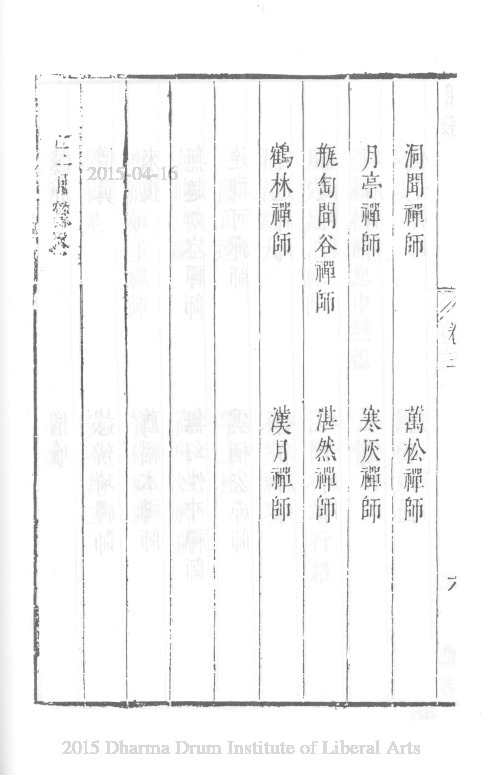 洞聞禪師
萬松禪師
月亭禪師
寒灰禪師
瓶匋聞谷禪師
湛然禪師
鶴林禪師
漢月禪師
卷三
六
2015-04-16
2015 Dharma Drum Institute of Liberal Arts